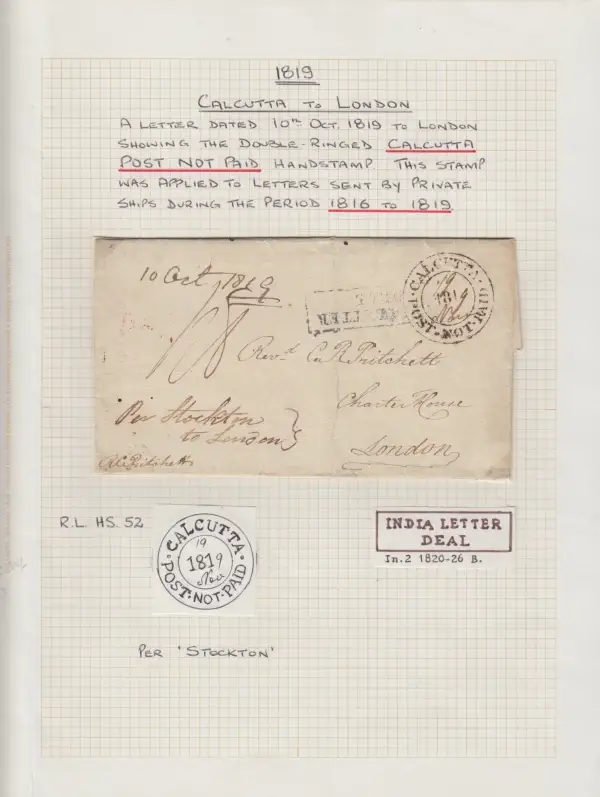 1819
CALCUTTA TO LONDON
A LETTER DATED 10TH OCT. 1819 TO LONDON
SHOWING THE DOUBLE-RINGED CALCUTTA
POST NOT PAID HANDSTAMP. THIS STAMP
WAS APPLIED TO LETTERS SENT BY PRIVATE
SHIPS DURING THE PERIOD 1816 TO 1819
10 Oct 1819
CALCUTTA
19
1819
Nov
POST·NOT·PAID
LETTER
Revd. C. R. Pritchett
Charter House
London
Per Stockton
to London
Pritchett
R.L. HS. 52
·CALCUTTA·
19
1819
Nov
POST·NOT·PAID
INDIA LETTER
DEAL
In.2 1820-26 B.
PER 'STOCKTON'